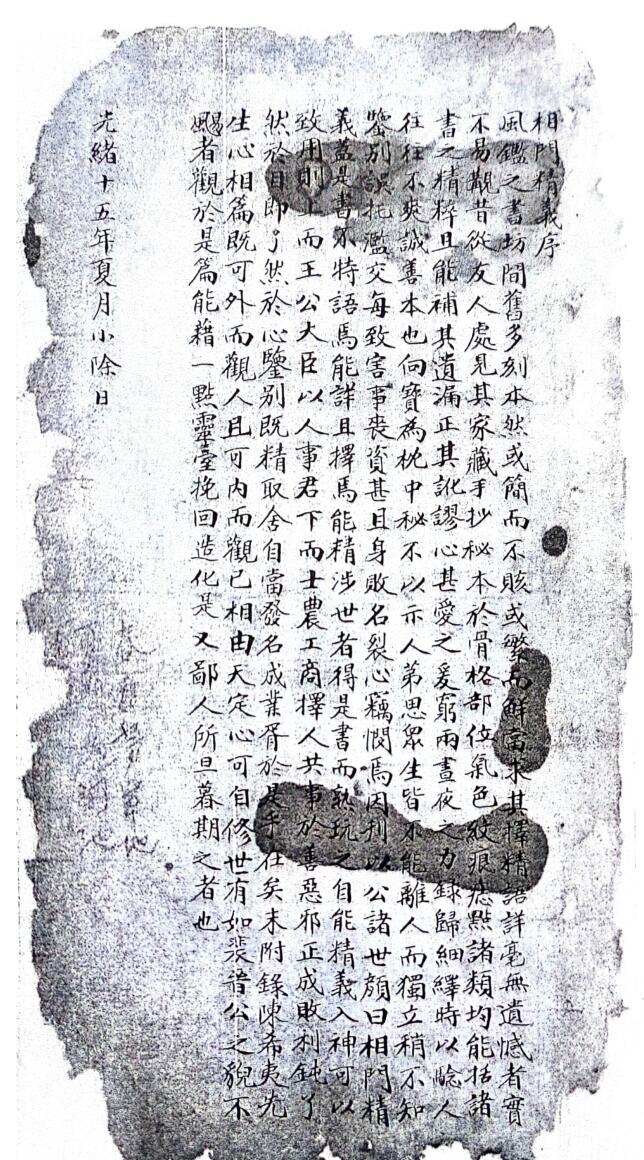 相門精義序
風鑑之書坊間舊多刻本然或簡而不賅或繁而鮮當求其擇精語詳毫無遺憾者實
不易觀昔從友人處見其家藏手抄秘本於骨格部位氣色紋痕痣點諸類均能括諸
書之精粹且能補其遺漏正其訛謬心甚愛之爰窮兩晝夜之力錄歸細繹時以騐人
往往不爽誠善本也向寶為枕中秘不以示人第思眾生皆不能離人而獨立稍不知
鑒別誤托濫交每致害事喪資甚且身敗名裂心竊憫焉因刊以公諸世顏曰相門精
義蓋是書不特語焉能詳且擇焉能精涉世者得是書而熟玩之自能精義入神可以
致用則上而王公大臣以人事君下而士農工商擇人共事於善惡邪正成敗利鈍了
然於目即了然於心鑒別既精取舍自當發名成業胥於是乎在矣末附錄陳希夷先
生心相篇既可外而觀人且可內而觀己相由天定心可自修世有如裴晉公之貌不
颺者觀於是篇能藉一點靈臺挽回造化是又鄙人所旦暮期之者也
光緒十五年夏月小除日